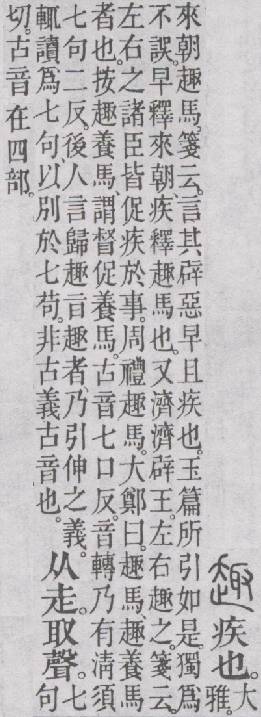 趣疾也。大雅。
來朝趣馬。箋云。言其辟惡早且疾也。玉篇所引如是。獨爲
不誤。早釋來朝、疾釋趣馬也。又濟濟辟王。左右趣之。箋云。
左右之諸臣皆促疾於事。周禮趣馬。大鄭曰。趣馬、趣養馬
者也。按趣養馬、謂督促養馬。古音七口反。音轉乃有清須
七句二反。後人言歸趣㫖趣者、乃引伸之義。
輒讀爲七句、以別於七苟。非古義古音也。
从走。取聲。七句
切。古音在四部。